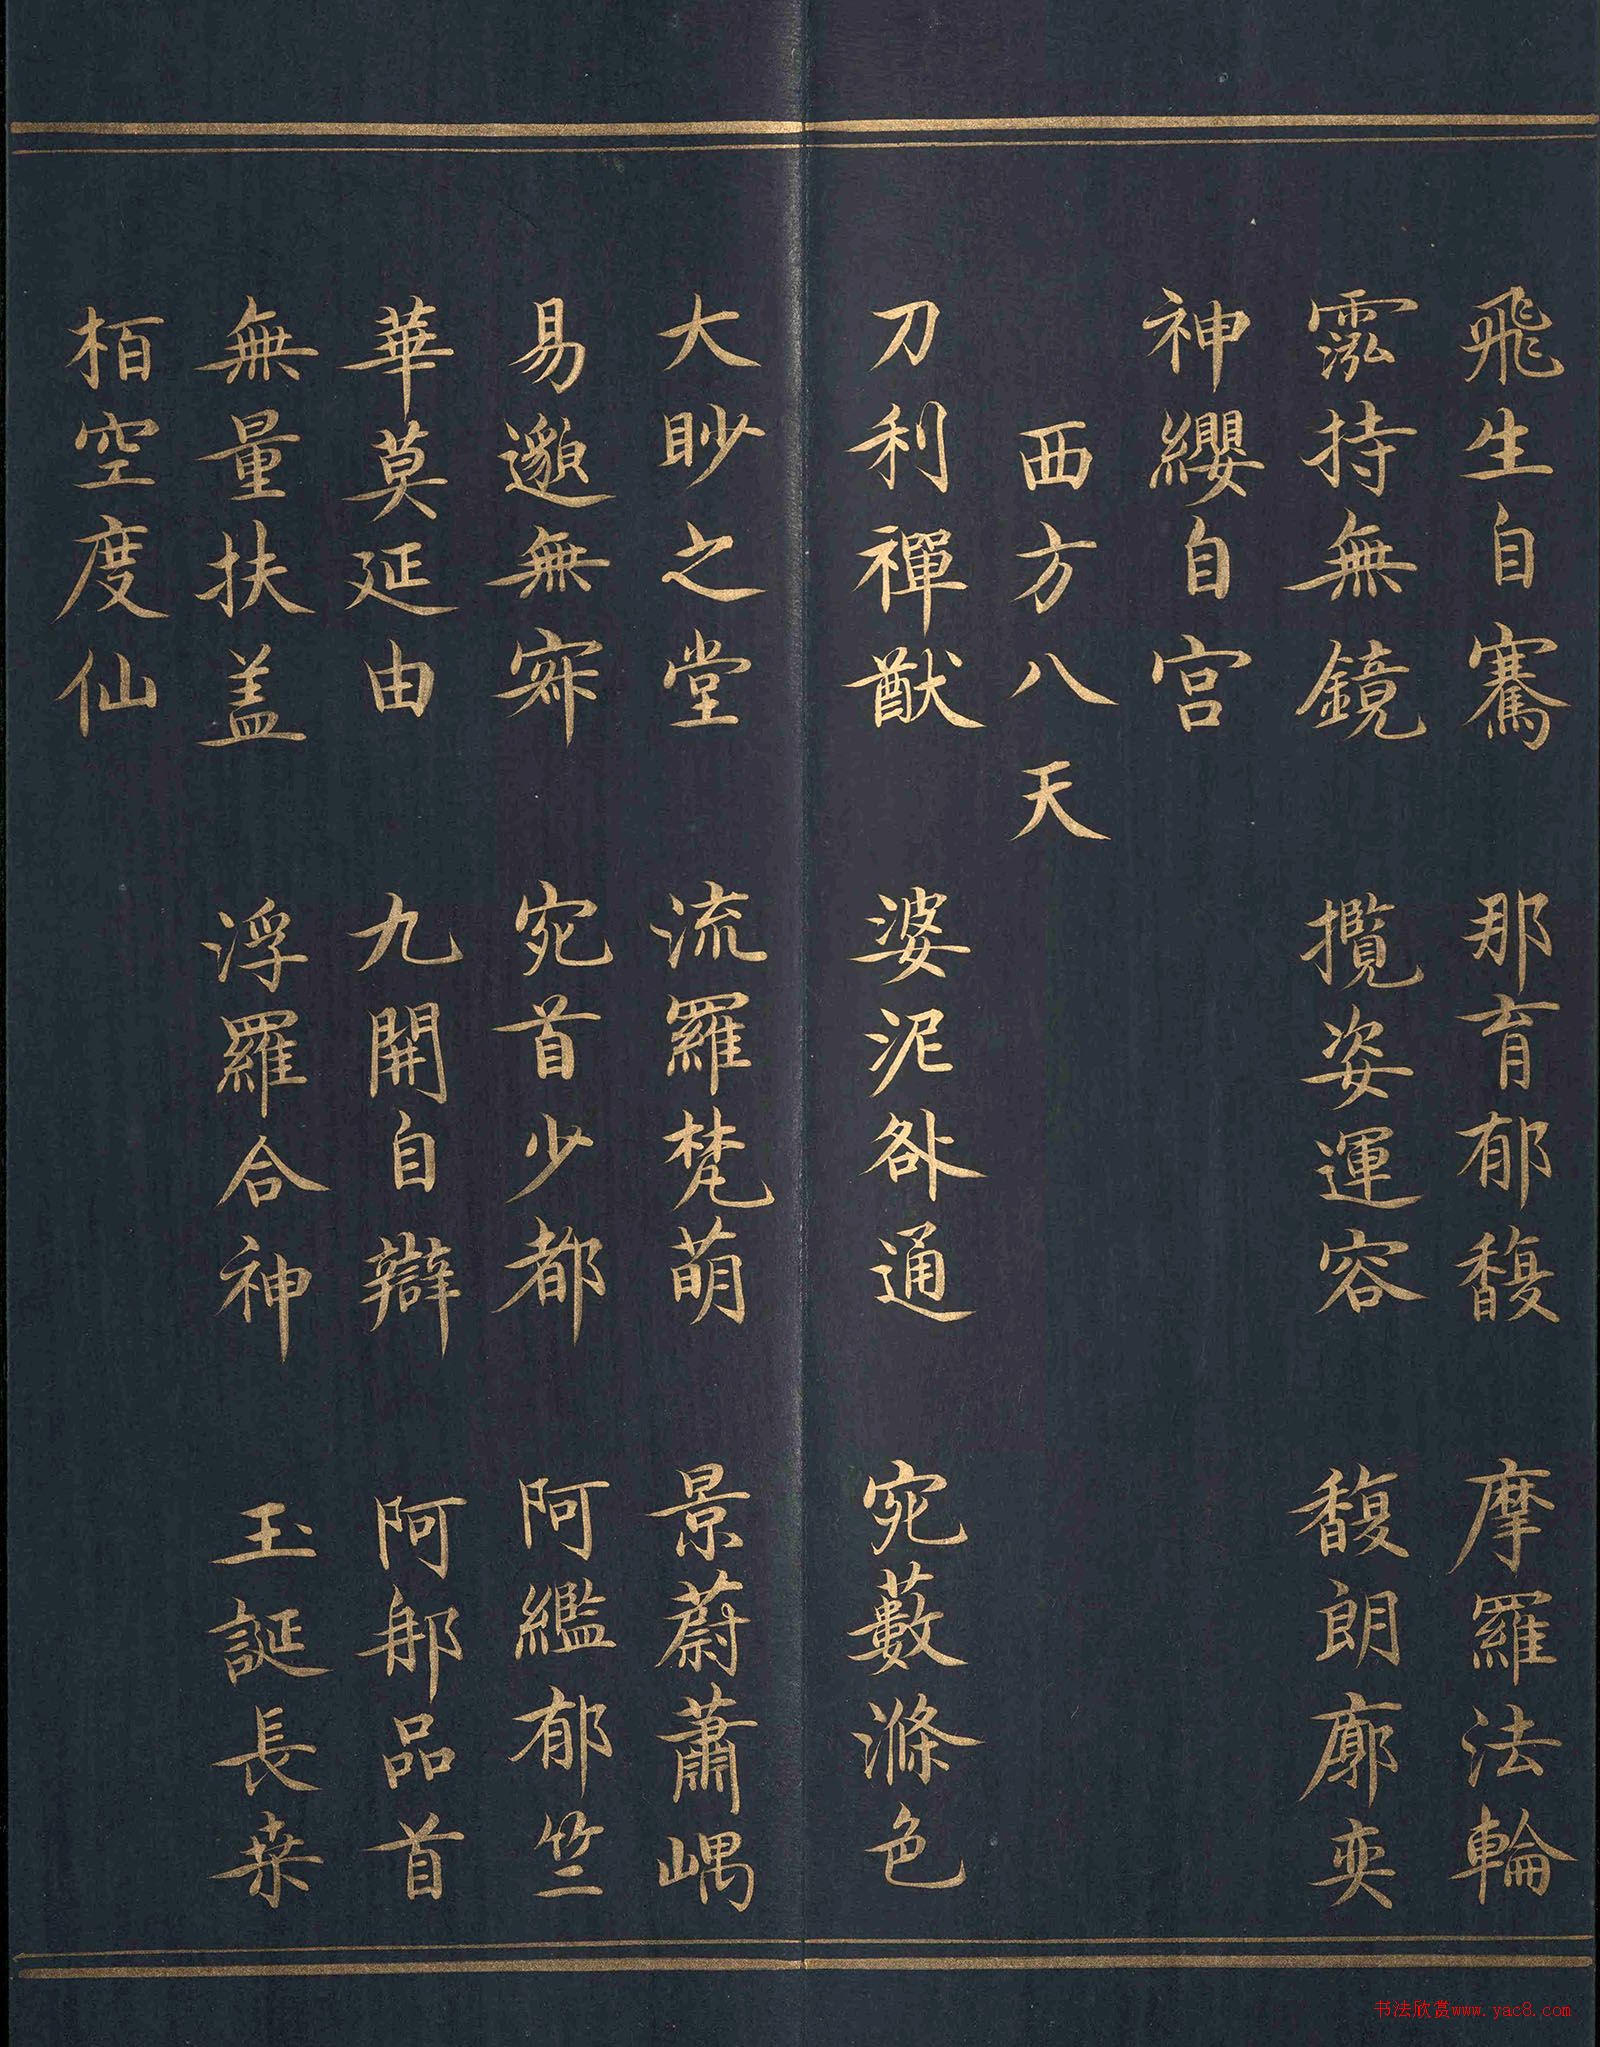 飛生自騫 那育郁馥 摩羅法輪
霐持無鏡 攬姿運容 馥朗廓奕
神纓自宮
西方八天
刀利禪猷 婆泥咎通 宛藪滌色
大眇之堂 流羅梵萌 景蔚蕭嵎
易邈無寂 宛首少都 阿繿郁竺
華莫延由 九開自辯 阿那品首
無量扶盖 浮羅合神 玉誕長桒
栢空度仙
书法欣赏www.yac8.com